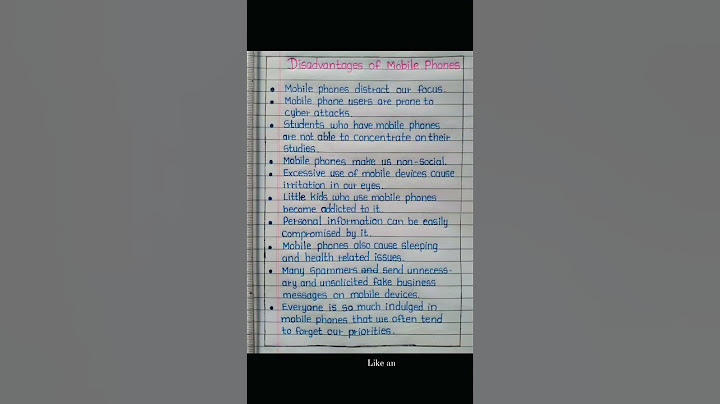 Disadvantages of Mobile Phones
• Mobile phones distract our focus.
• Mobile phone users are prone to
cyber attacks.
• Students who have mobile phones
are not able to concentrate on their
studies.
• Mobile phones make us non-social.
• Excessive use of mobile devices cause
irritation in our eyes.
• Little kids who use mobile phones
become addicted to it.
• Personal information can be easily
compromised by it.
• Mobile phones also cause sleeping
and health related issues.
• Many spammers and send unnecess-
ary and unsolicited fake business
messages on mobile devices.
• Everyone is so much indulged in
mobile phones that we often tend
to forget our priorities.
Like an